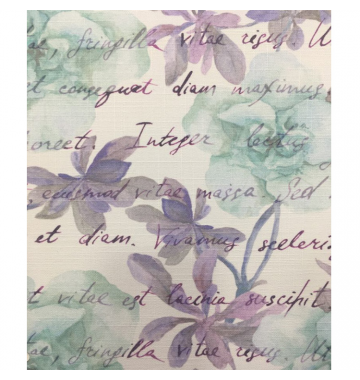 ae, fringilla vitae risus. Ut
t consequet diam maximus
oreet. Integer lectus
, euismod vitae massa. Sed
et diam. Vivamus sceleris
t vitae est lacinia suscipit.
ae, fringilla vitae risus. Ut